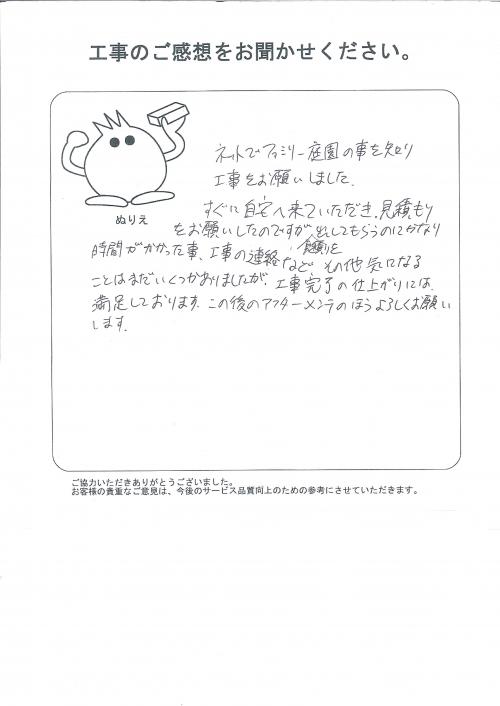 工事のご感想をお聞かせください。
ネットでファミリー庭園の事を知り
工事をお願いしました。
すぐに自宅へ来ていただき、見積もり
をお願いしたのですが、出してもらうのにかなり
時間がかかった事、工事の連絡など その他気になる
ことはまだいくつかありましたが、工事完了の仕上がりには、
満足しております。この後のアフターメンテのほうよろしくお願い
します。
ぬりえ
ご協力いただきありがとうございました。
お客様の貴重なご意見は、今後のサービス品質向上のための参考にさせていただきます。